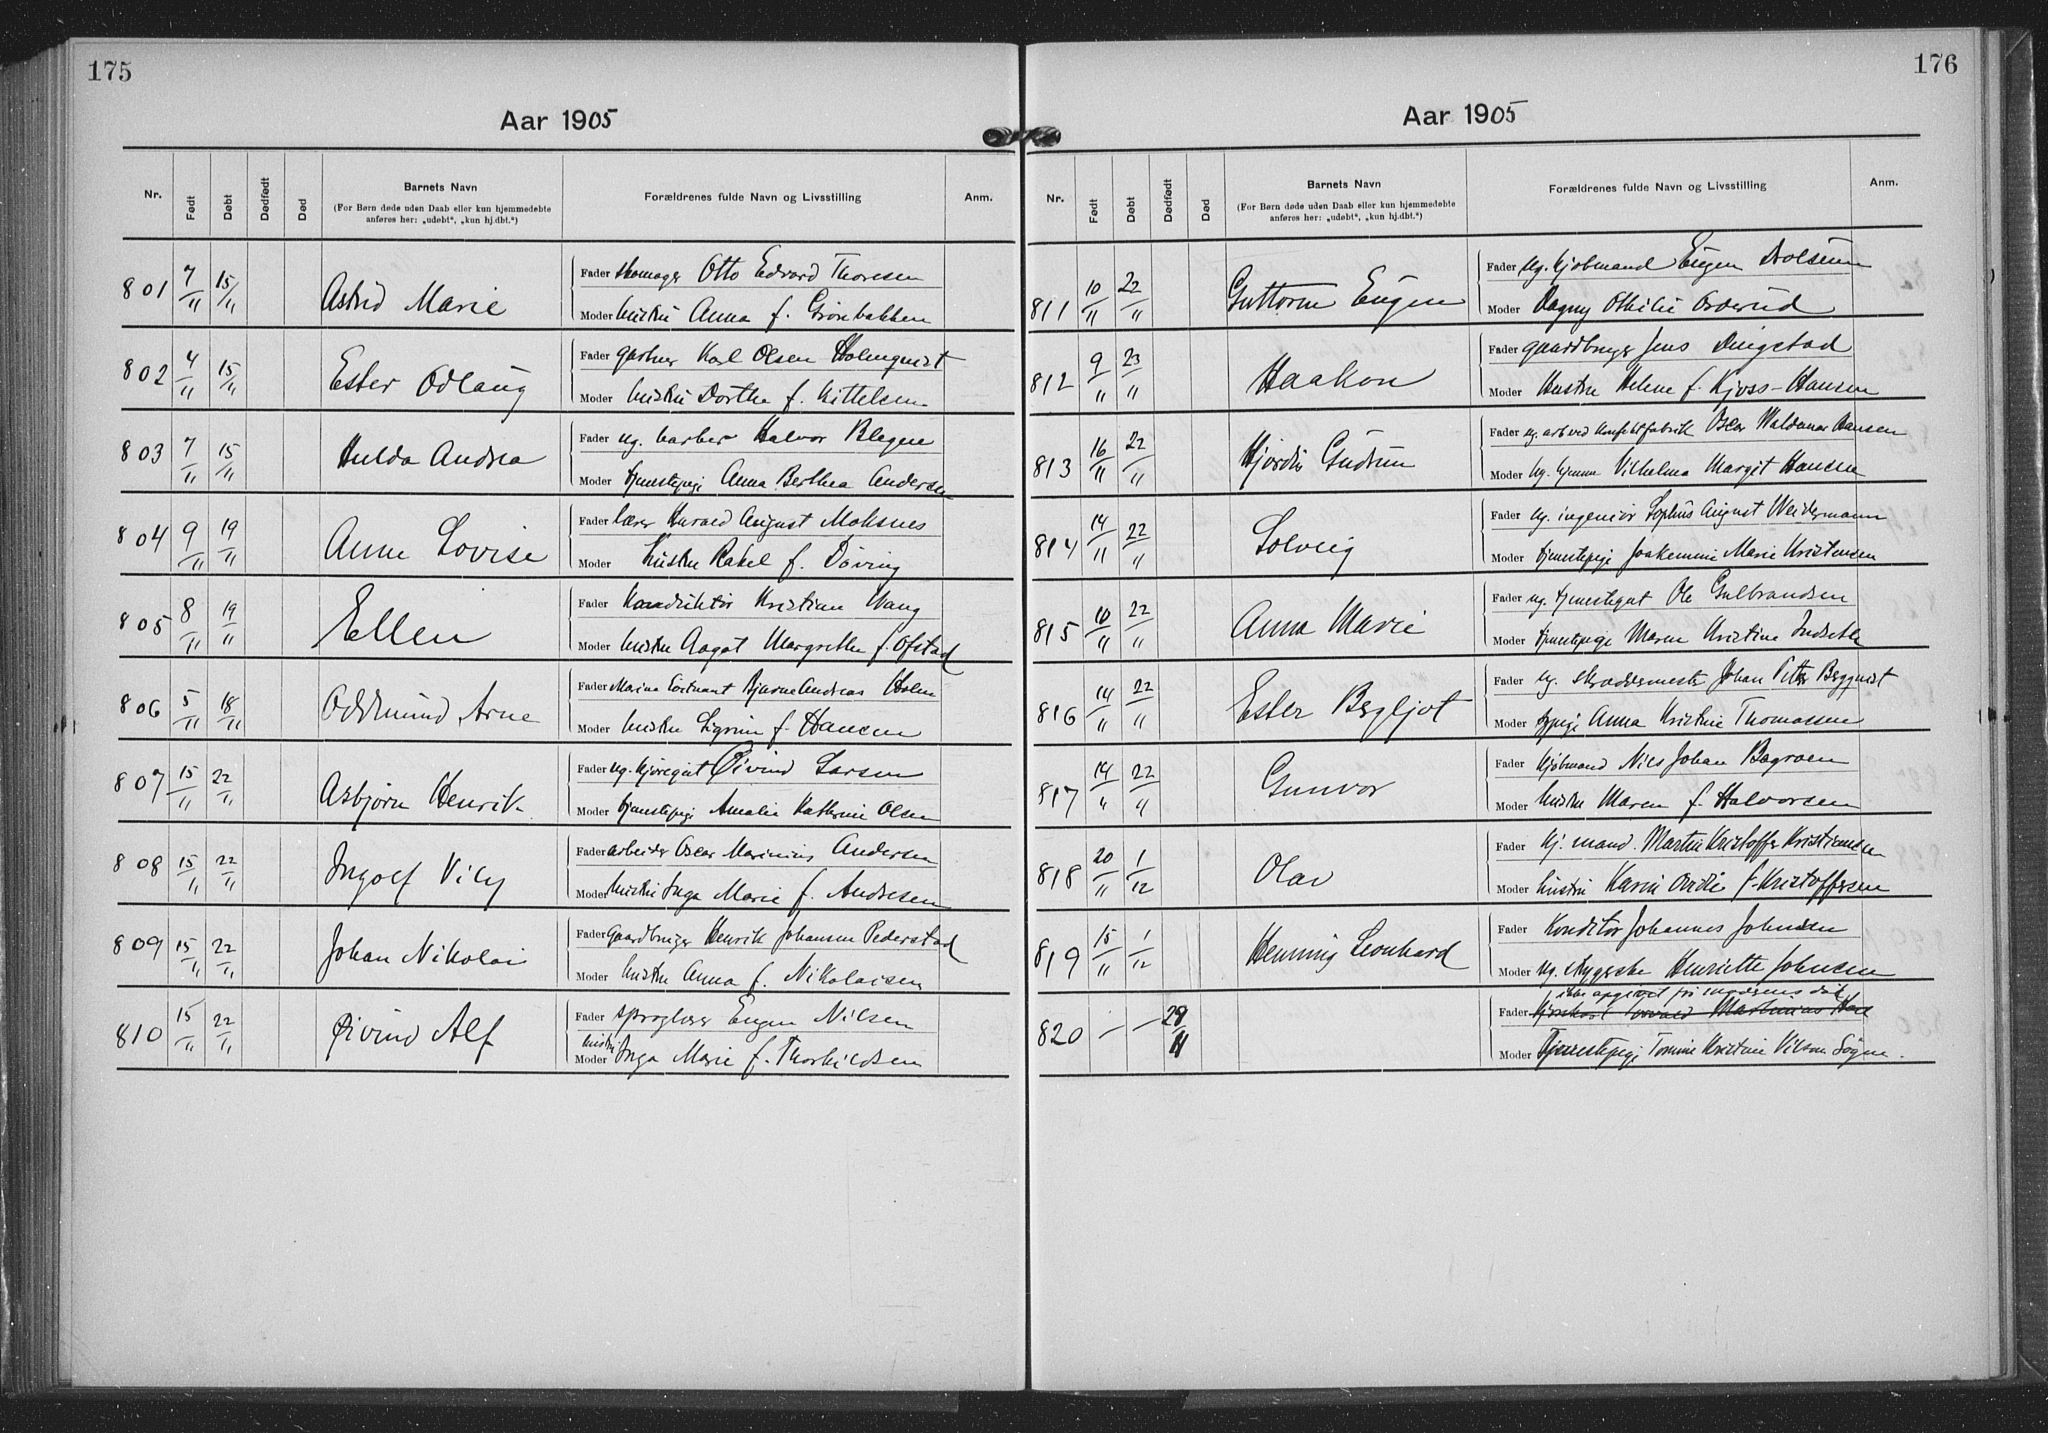 175
Aar 1905
Nr. Født Døbt Dødfødt Død Barnets Navn Forældrenes fulde Navn og Livsstilling Anm.
(For Børn døde uden Daab eller kun hjemmedøbte
anføres her: „udøbt“, „kun hj.dbt.“)
801 7/11 15/11 Astrid Marie Fader skomager Otto Edvard Thoresen
Moder hustru Anna f. Grönbakken
802 4/11 15/11 Ester Odlaug Fader gartner Karl Olsen Holmquist
Moder hustru Dorthe f. Kittelsen
803 7/11 15/11 Hulda Andrea Fader ug. barber Halvor Blegen
Moder tjenestepige Anna Berthea Andersen
804 9/11 19/11 Anne Lovise Fader lærer Harald August Moksnes
Moder hustru Rakel f. Döving
805 8/11 19/11 Ellen Fader Konduktör Kristian Wang
Moder hustru Aagot Margrethe f. Ofstad
806 5/11 18/11 Oddmund Arne Fader Marine Løitnant Bjarne Andreas Holm
Moder hustru Sigrun f. Hansen
807 15/11 22/11 Asbjørn Henrik Fader ug. kjøregut Øivind Larsen
Moder tjenestepige Amalie Kathrine Olsen
808 15/11 22/11 Ingolf Vily Fader arbeider Oscar Marinius Andersen
Moder hustru Inga Marie f. Andresen
809 15/11 22/11 Johan Nikolai Fader Gaardbruger Henrik Johansen Pederstad
Moder hustru Anna f. Nikolaisen
810 15/11 22/11 Øivind Alf Fader sproglærer Eugen Nilsen
Moder hustru Inga Marie f. Thorkildsen
176
Aar 1905
Nr. Født Døbt Dødfødt Død Barnets Navn Forældrenes fulde Navn og Livsstilling Anm.
(For Børn døde uden Daab eller kun hjemmedøbte
anføres her: „udøbt“, „kun hj.dbt.“)
811 10/11 22/11 Guttorm Eugen Fader ug. kjøbmand Eugen Holseum
Moder Dagny Othilie Orderud
812 9/11 23/11 Haakon Fader gaardbruger Jens Dingstad
Moder Hustru Helene f. Kjoss-Hansen
813 16/11 22/11 Hjørdis Gudrun Fader ug. arb ved Konfektfabrik Oscar Waldemar Hansen
Moder ug. Vilhelma Margit Hansen
814 14/11 22/11 Solveig Fader ug. ingeniör Sophus August Weidemann
Moder tjenestepige Joakemine Marie Kristensen
815 10/11 22/11 Anna Marie Fader ug. tjenestegut Ole Gulbrandsen
Moder tjenestepige Maren Kristine Indseth
816 14/11 22/11 Ester Bergljot Fader ug. skreddermester Johan Petter Bergquist
Moder tjpige Anna Kristine Thomassen
817 14/11 22/11 Gunvor Fader Kjøbmand Nils Johan Bagroen
Moder hustru Maren f. Halvorsen
818 20/11 1/12 Olav Fader Kj. mand. Martin Kristoffer Kristiansen
Moder hustru Karen f. Kristoffersen
819 15/11 1/12 Henning Leonhard Fader Konditor Johannes Johnsen
Moder ug. Sygerske Henriette Johnsen
ikke opgivet fri moderens død
820 — — 29/11 Fader Torvald Martinius
Moder Tjenestepige Tomine Kristine Vilson Søgne.